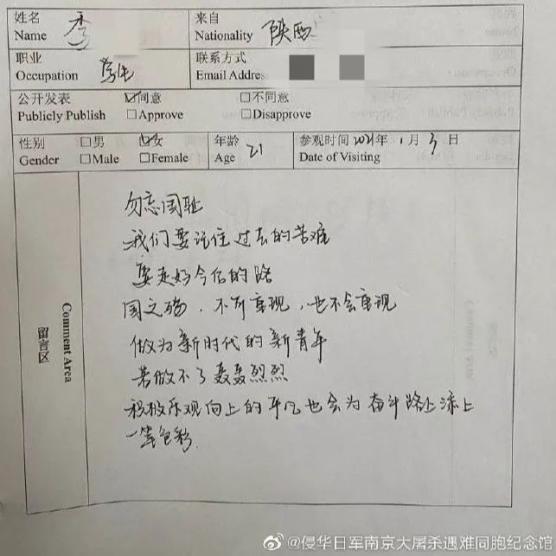 姓名 李 来自 陕西
Name Nationality
职业 学生 联系方式
Occupation Email Address
公开发表 ☑同意 □不同意
Publicly Publish □Approve □Disapprove
性别 □男 ☑女 年龄 21 参观时间 2021年 1月 3日
Gender □Male □Female Age Date of Visiting
勿忘国耻
我们要记住过去的苦难
要走好今后的路
国之殇，不可重现，也不会重现
做为新时代的新青年
若做不了轰轰烈烈
积极乐观向上的平凡也会为奋斗路上添上
一笔色彩
留言区
Comment Area
@侵华日军南京大屠杀遇难同胞纪念馆